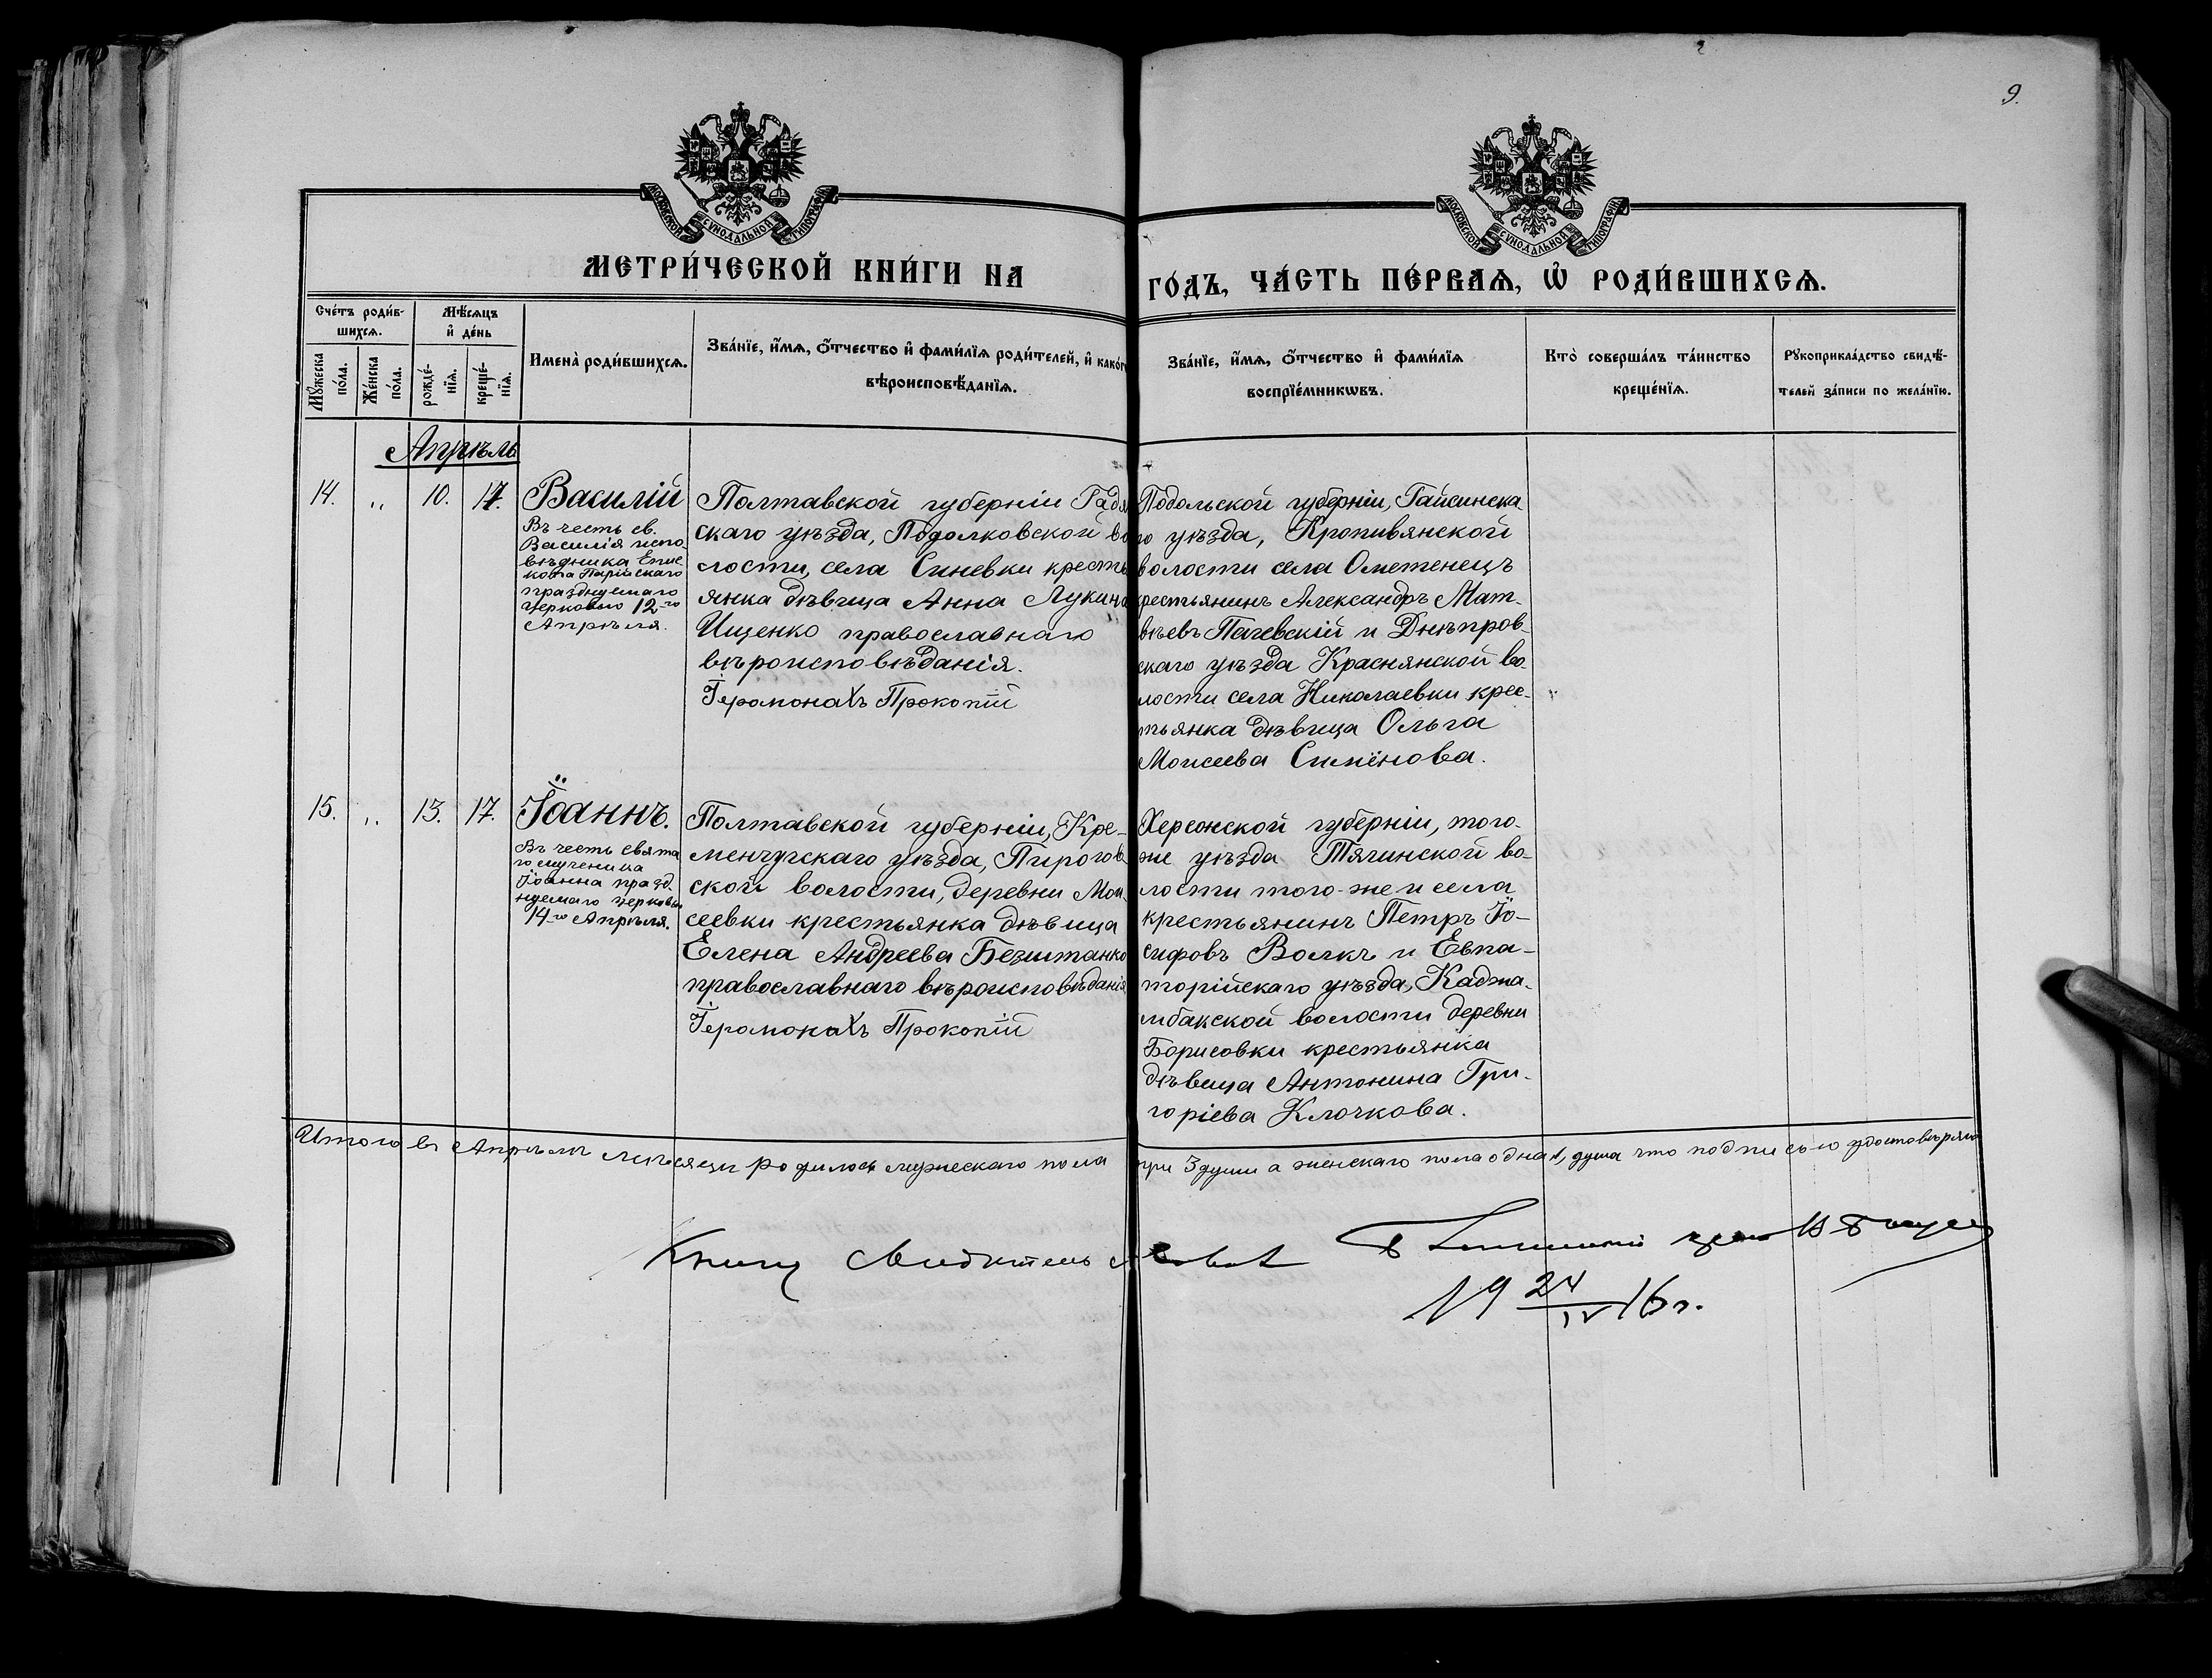 9.
МОСКОВСКОЙ СУНОДАЛЬНОЙ ТИПОГРАФІИ
МОСКОВСКОЙ СУНОДАЛЬНОЙ ТИПОГРАФІИ
МЕТРИ́ЧЕСКОЙ КНИ́ГИ НА
ГО́ДЪ, ЧА́СТЬ ПЕ́РВАѦ, Ѡ҆ РОДИ́ВШИХСѦ.
Сче́тъ роди́в-
шихсѧ.
Мѣ́сѧцъ
и҆ де́нь
Мꙋ́жеска
по́ла.
Же́нска
по́ла.
рожде́-
нїѧ.
креще́-
нїѧ.
Имена̀ роди́вшихсѧ.
Зва́нїе, и҆́мѧ, ѻ҆́тчество и҆ фами́лїѧ роди́телей, и҆ како́г
вѣроисповѣ́данїѧ.
Зва́нїе, и҆́мѧ, ѻ҆́тчество и҆ фами́лїѧ
воспрїе́мникѡвъ.
Кто̀ соверша́лъ та́инство
креще́нїѧ.
Рꙋкоприкла́дство свидѣ́-
телей за́писи по жела́нїю.
Апрѣль
14. „ 10. 17.
Василій
Въ честь св.
Василія испо-
вѣдника Епис
копа Парійскаго
празднуемаго
церковью 12-го
Апрѣля.
Полтавской губерніи Гадя
скаго уѣзда, Подолковской во
лости, села Синевки кресть
янка дѣвица Анна Лукина
Ищенко православнаго
вѣроисповѣданія.
Іеромонахъ Прокопій
Подольской губерніи, Гайсинска-
го уѣзда, Кропивянской
волости села Ометенецъ
крестьянинъ Александръ Мат-
вѣевъ Пачевскій и Днѣпров-
скаго уѣзда Краснянской во-
лости села Николаевки крес-
тьянка дѣвица Ольга
Моисеева Симінова.
15. „ 13. 17.
Іоаннъ.
Въ честь свята
го мученика
Іоанна празд-
нуемаго церковью
14-го Апрѣля.
Полтавской губерніи, Кре-
менчугскаго уѣзда, Пирогов-
ской волости, деревни Мои-
сеевки крестьянка дѣвица
Елена Андреева Безштанко
православнаго вѣроисповѣданія
Іеромонахъ Прокопій
Херсонской губерніи, того-
же уѣзда Тягинской во-
лости того-же и села
крестьянинъ Петръ Іо-
сифовъ Волкъ и Евпа-
торійскаго уѣзда, Каджа-
мбакской волости деревни
Борисовки крестьянка
дѣвица Антонина Гри-
горіева Клочкова.
Итого въ Апрѣлѣ мѣсяцѣ родилось мужескаго пола
три 3 души а женскаго пола одна 1, душа что подписью удостовѣряю
Книгу
19 24/IV 16 г.